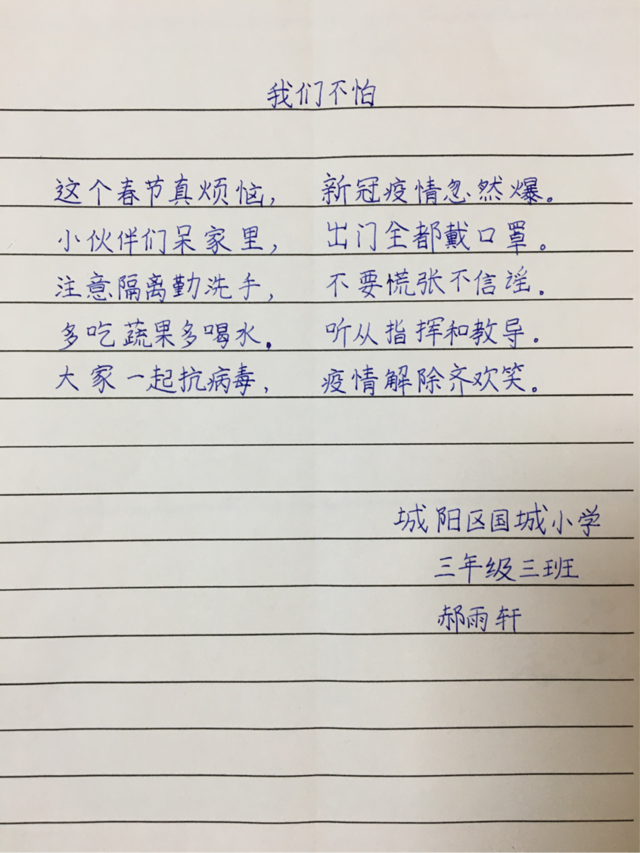 我们不怕
这个春节真烦恼， 新冠疫情忽然爆。
小伙伴们呆家里， 出门全都戴口罩。
注意隔离勤洗手， 不要慌张不信谣。
多吃蔬果多喝水。 听从指挥和教导。
大家一起抗病毒， 疫情解除齐欢笑。
城阳区国城小学
三年级三班
郝雨轩